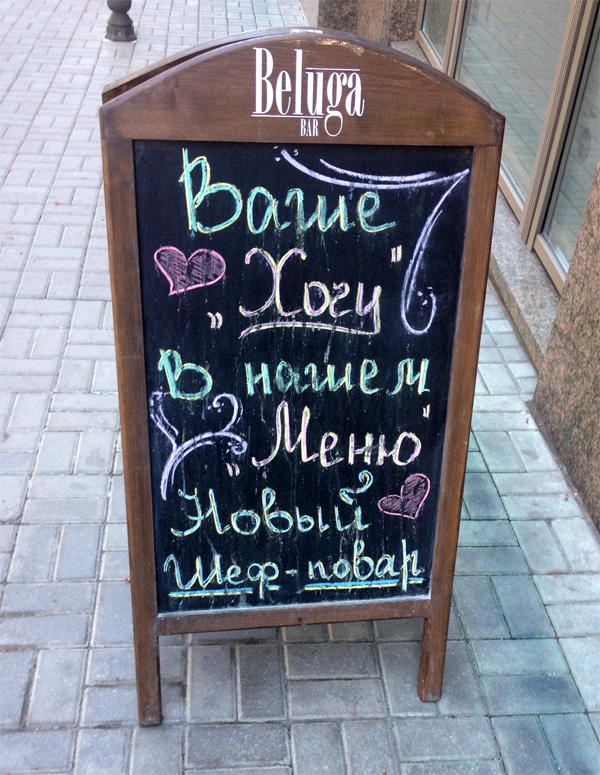 Beluga
BAR
Ваше
„Хочу"
В нашем
„Меню"
Новый
Шеф-повар